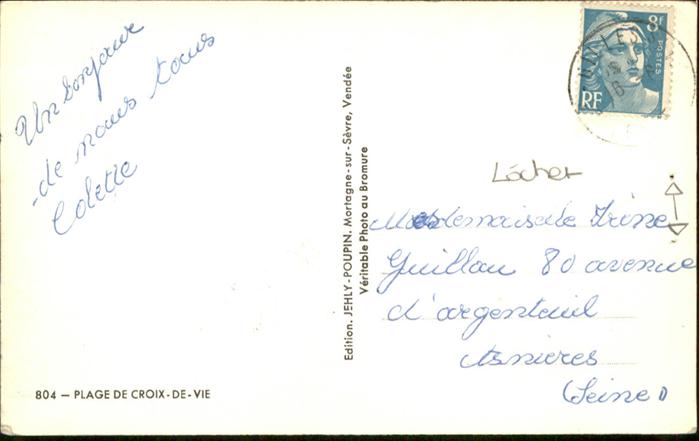 Un bonjour
de nous tous
Colette
804 — PLAGE DE CROIX-DE-VIE
Edition. JEHLY-POUPIN. Mortagne-sur-Sèvre, Vendée
Véritable Photo au Bromure
8f
POSTES
RF
Lécher
Mademoiselle Irène
Guillou 80 avenue
d'argenteuil
Asnieres
(Seine)